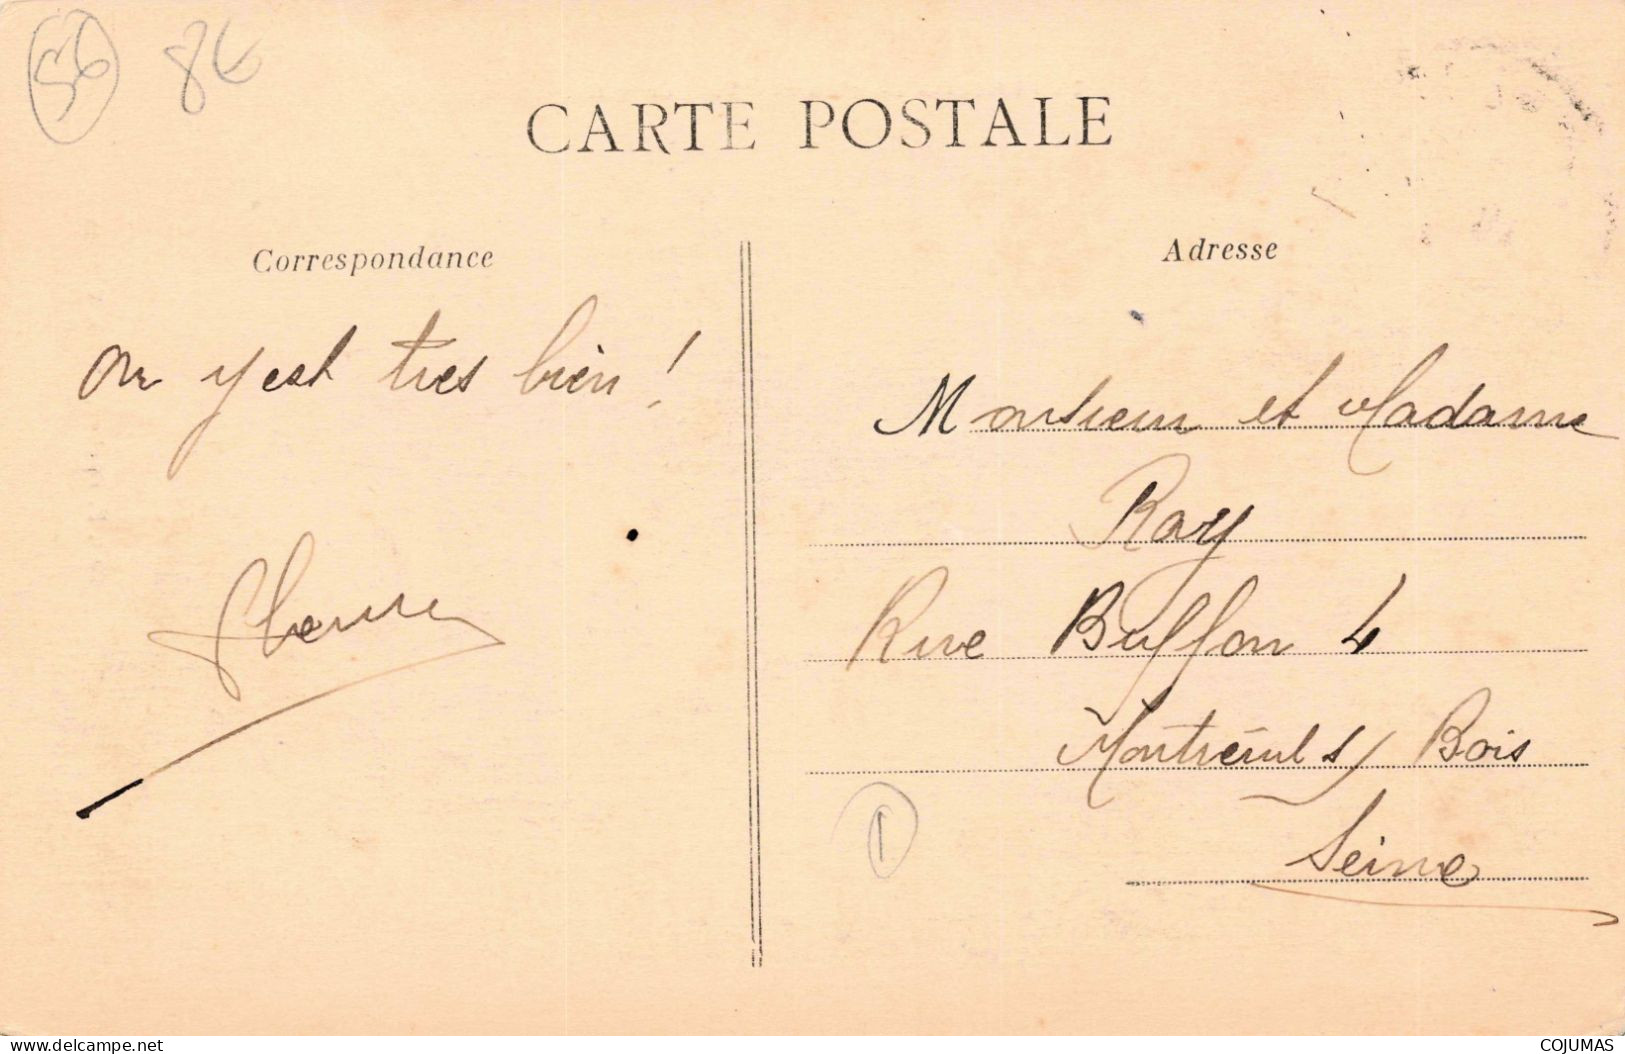 56 8€
CARTE POSTALE
Correspondance
Adresse
On y est tres bien !
Monsieur et Madame
Ray
Rue Buffon 4
Montreuil s/ Bois
Seine
1
www.delcampe.net
COJUMAS